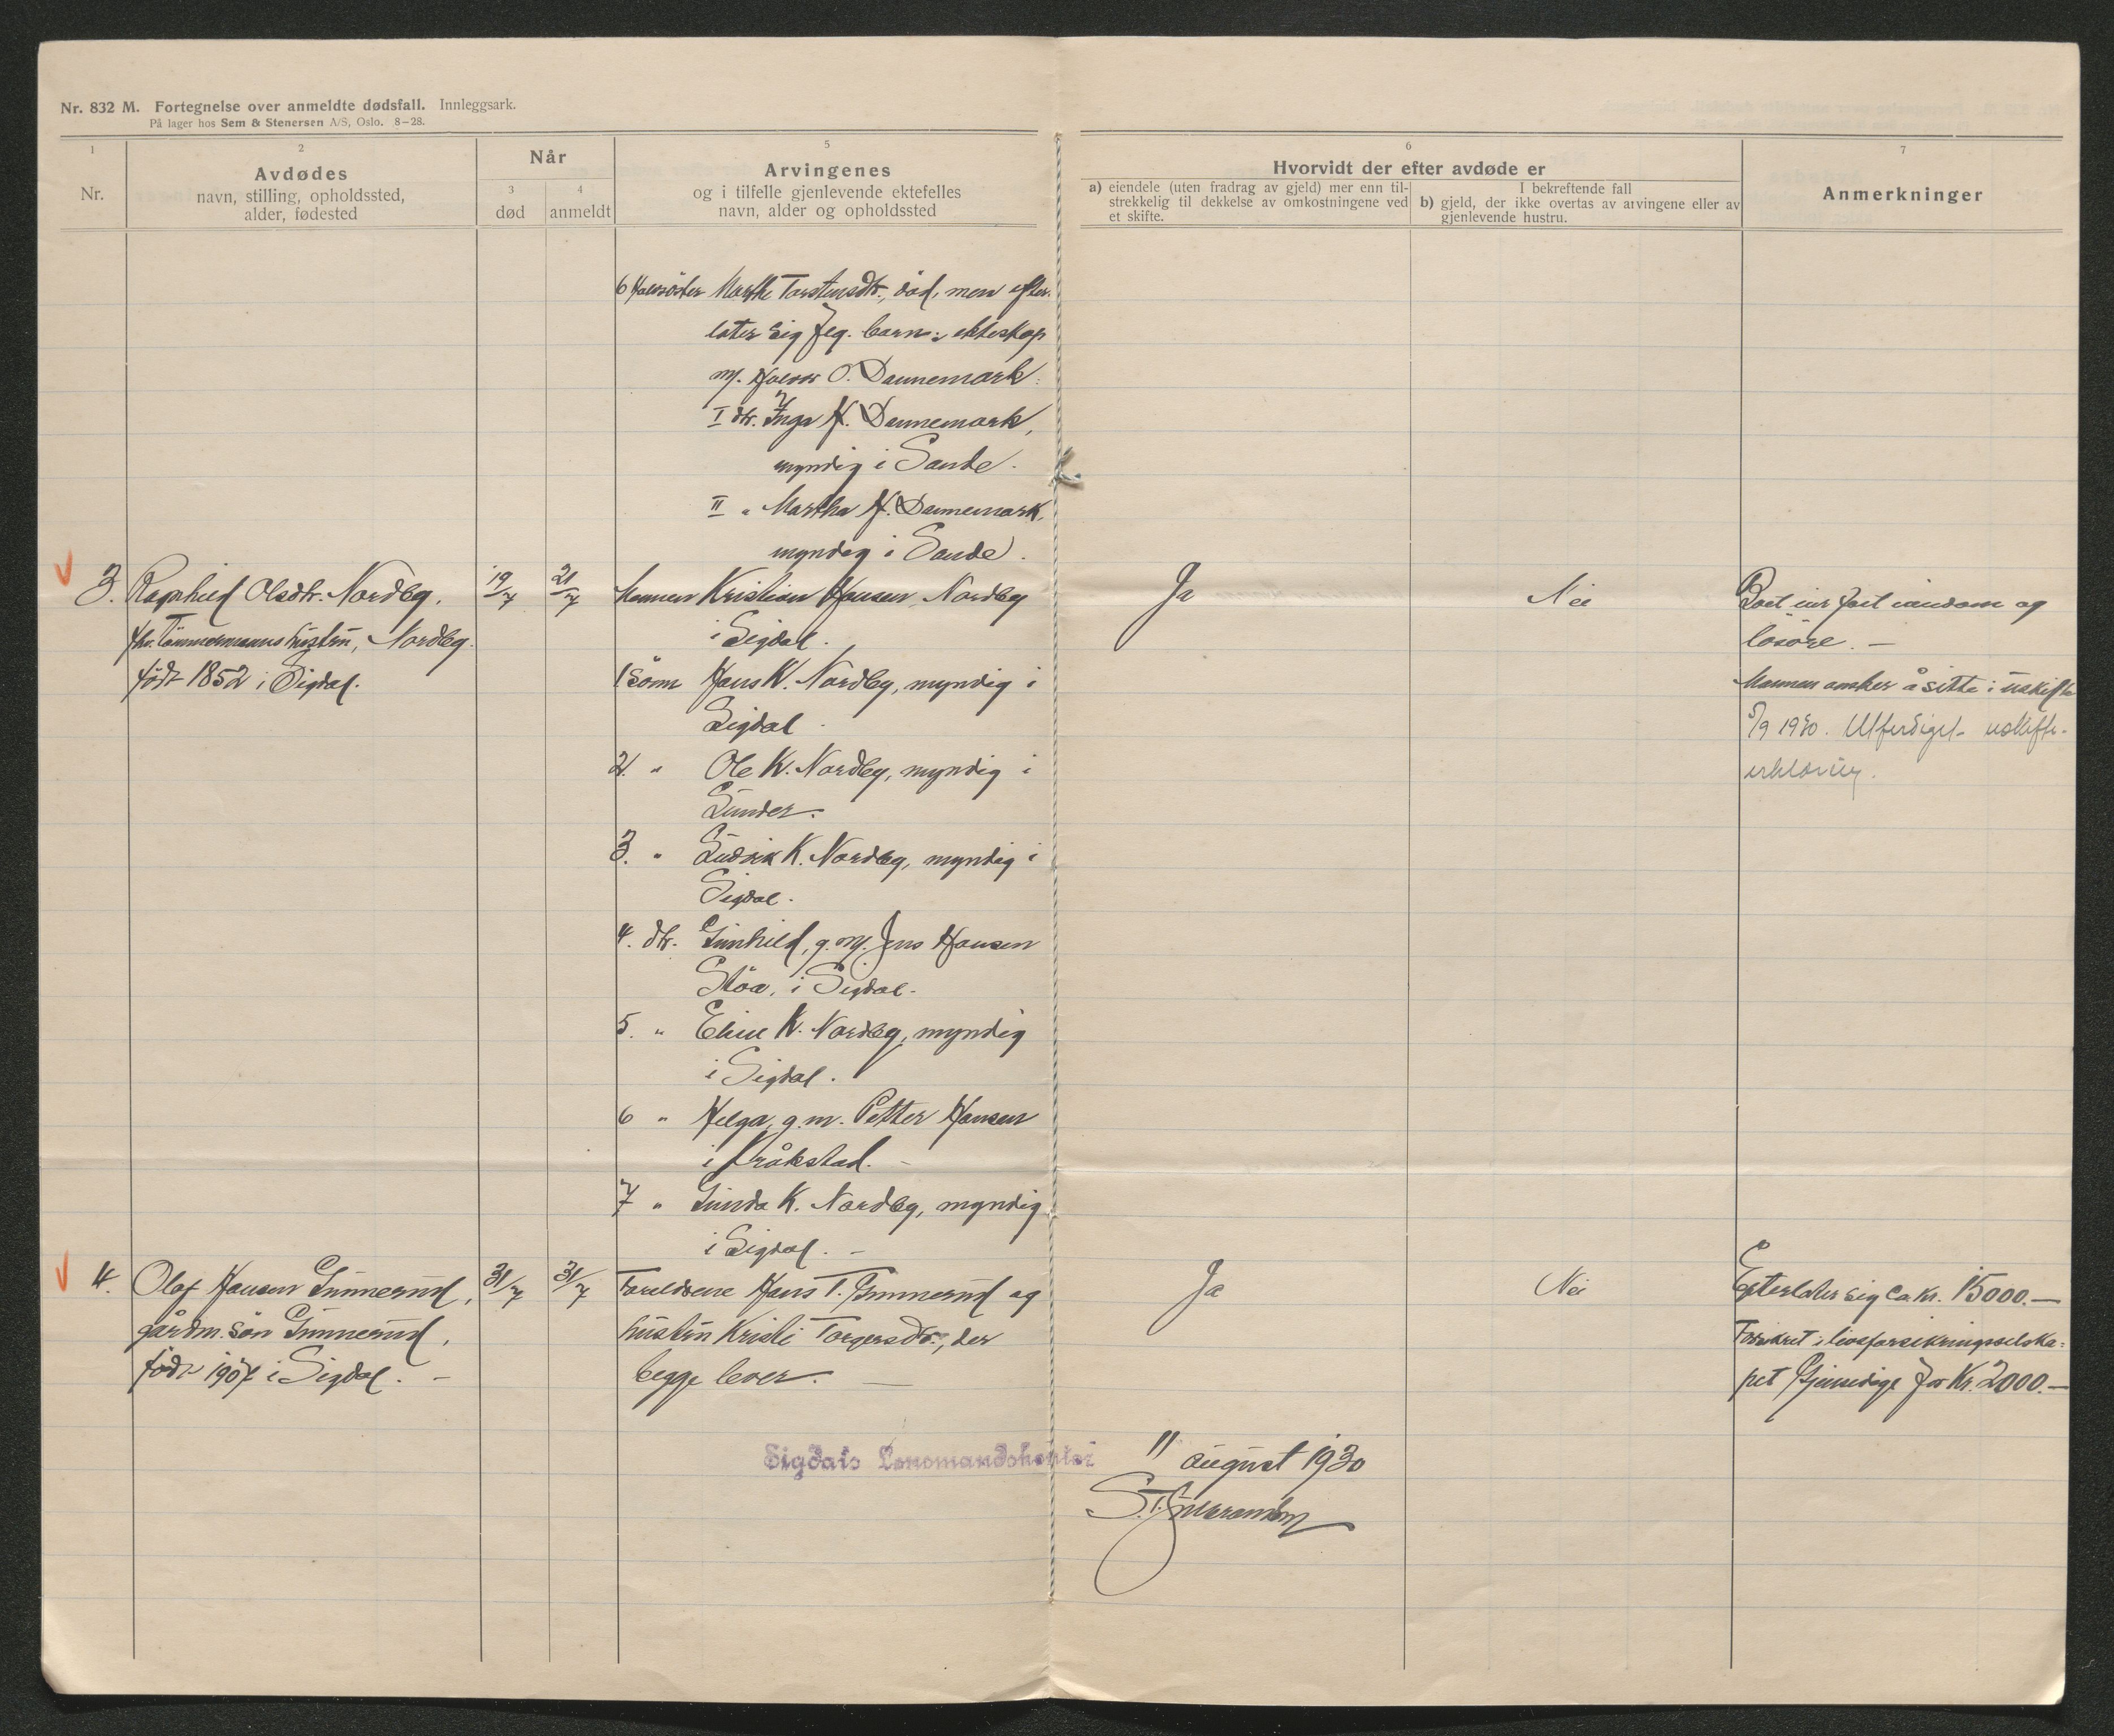 Nr. 832 M. Fortegnelse over anmeldte dødsfall. Innleggsark.
På lager hos Sem & Stenersen A/S, Oslo. 8–28.
1
Nr.
2
Avdødes
navn, stilling, opholdssted,
alder, fødested
Når
3
død
4
anmeldt
5
Arvingenes
og i tilfelle gjenlevende ektefelles
navn, alder og opholdssted
6
Hvorvidt der efter avdøde er
a) eiendele (uten fradrag av gjeld) mer enn til-
strekkelig til dekkelse av omkostningene ved
et skifte.
I bekreftende fall
b) gjeld, der ikke overtas av arvingene eller av
gjenlevende hustru.
7
Anmerkninger
6 Halvsöster Marthe Torstensdtr., död, men efter-
later sig flg. barn i ekteskap
m/ Halvor O. Dannemark:
I dtr. Inga H. Dannemark,
myndig i Sande.
II " Martha H. Dannemark,
myndig i Sande.
3. Ragnhild Olsdtr. Nordby,
fhv. tömmermanns hustru, Nordby.
född 1852 i Sigdal.
19/7
21/7
Mannen Kristian Hansen Nordby
i Sigdal.
1 sönn Hans K. Nordby, myndig i
Sigdal.
2. " Ole K. Nordby, myndig i
Lunder.
3. " Ludvik K. Nordby, myndig i
Sigdal.
4. dtr. Gunhild, g.m/ Jens Hansen
Stöa, i Sigdal.
5. " Eline K. Nordby, myndig
i Sigdal.
6 " Helga, g.m. Petter Hansen
i Kråkstad. –
7 " Gunda K. Nordby, myndig
i Sigdal. –
Ja
Nei
Boet eier fast eiendom og
lösöre. –
Mannen ønsker å sitte i uskifte
5/9 1930. Utferdiget uskifte-
erklæring.
4. Olaf Hansen Gunnerud,
gårdm. sön Gunnerud,
född 1907 i Sigdal. –
31/7
31/7
Foreldrene Hans T. Gunnerud og
hustru Kristi Torgersdtr., der
begge lever. —
Ja
Nei
Efterlater sig ca kr. 15000.—
Forsikret i livsforsikringsselska-
pet Gjensidige for Kr. 2000.—
Sigdals Lensmandskontor
11 august 1930